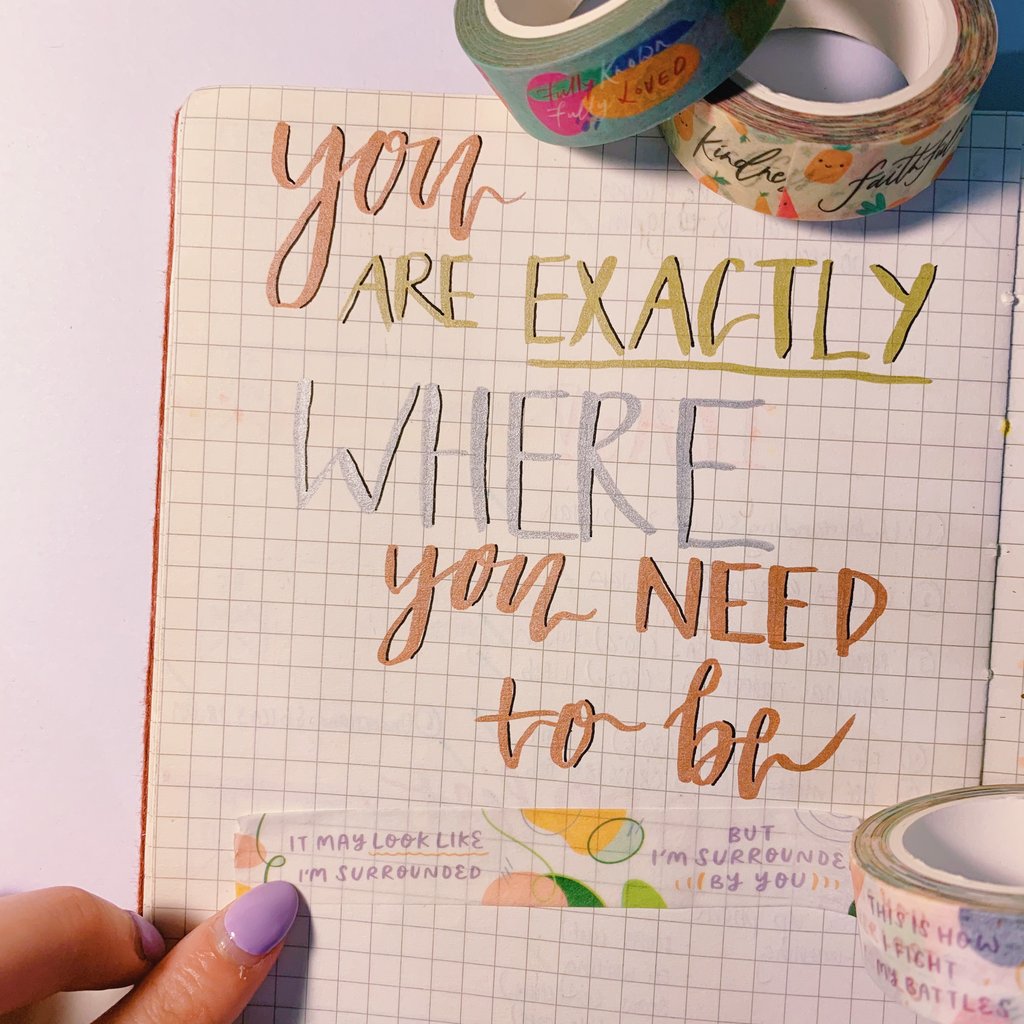 Fully Known
Fully LOVED
Kindness
faithful
you
ARE EXACTLY
WHERE
you NEED
to be
IT MAY LOOK LIKE
I'M SURROUNDED
BUT
I'M SURROUNDE
(((BY YOU)))
THIS IS HOW
I FIGHT
MY BATTLES